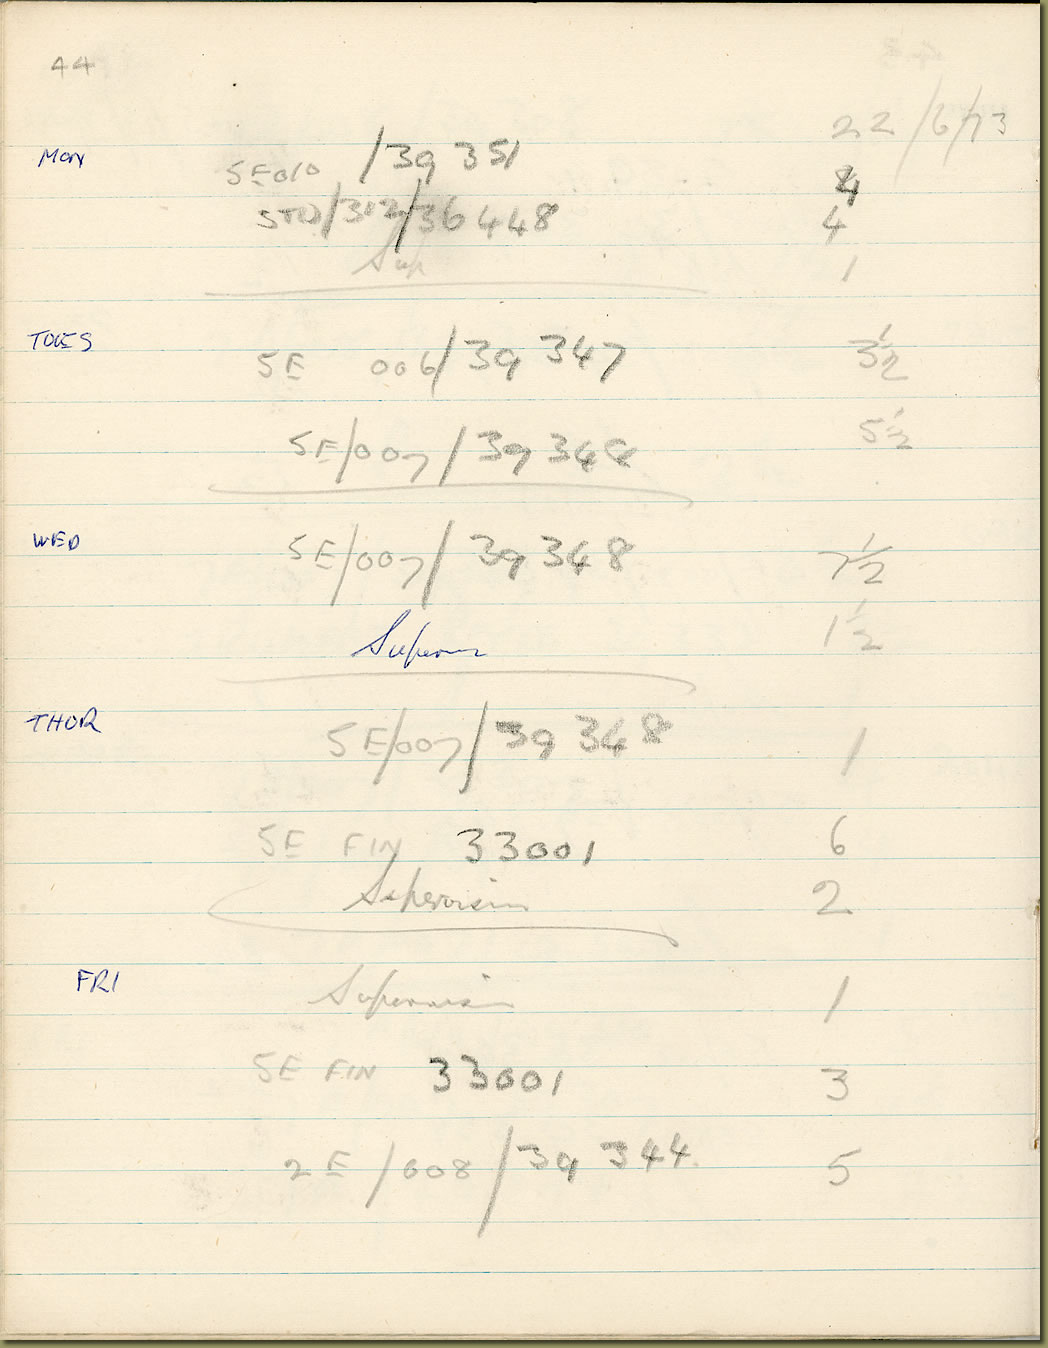 44
22/6/73
Mon 5E010 /39 351 4
STD/312/36448 4
Sup 1
TUES 5E 006/39 347 3½
5E/007/39348 5½
WED 5E/007/39348 7½
Supervis 1½
THUR 5E/007/39348 1
5E FIN 33001 6
Supervision 2
FRI Supervision 1
5E FIN 33001 3
2E/008/39 344. 5